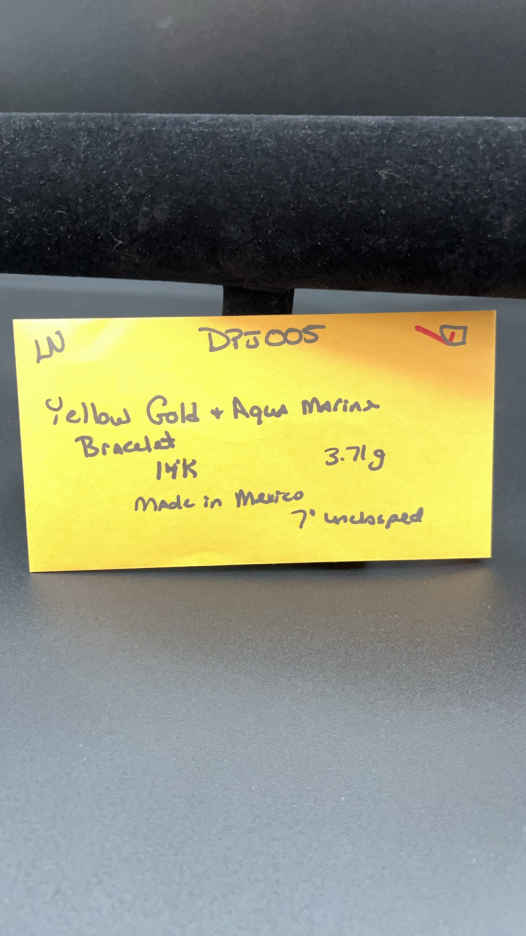 LN DPJ005
Yellow Gold + Aqua Marine
Bracelet
14K 3.71g
Made in Mexico
7" unclasped